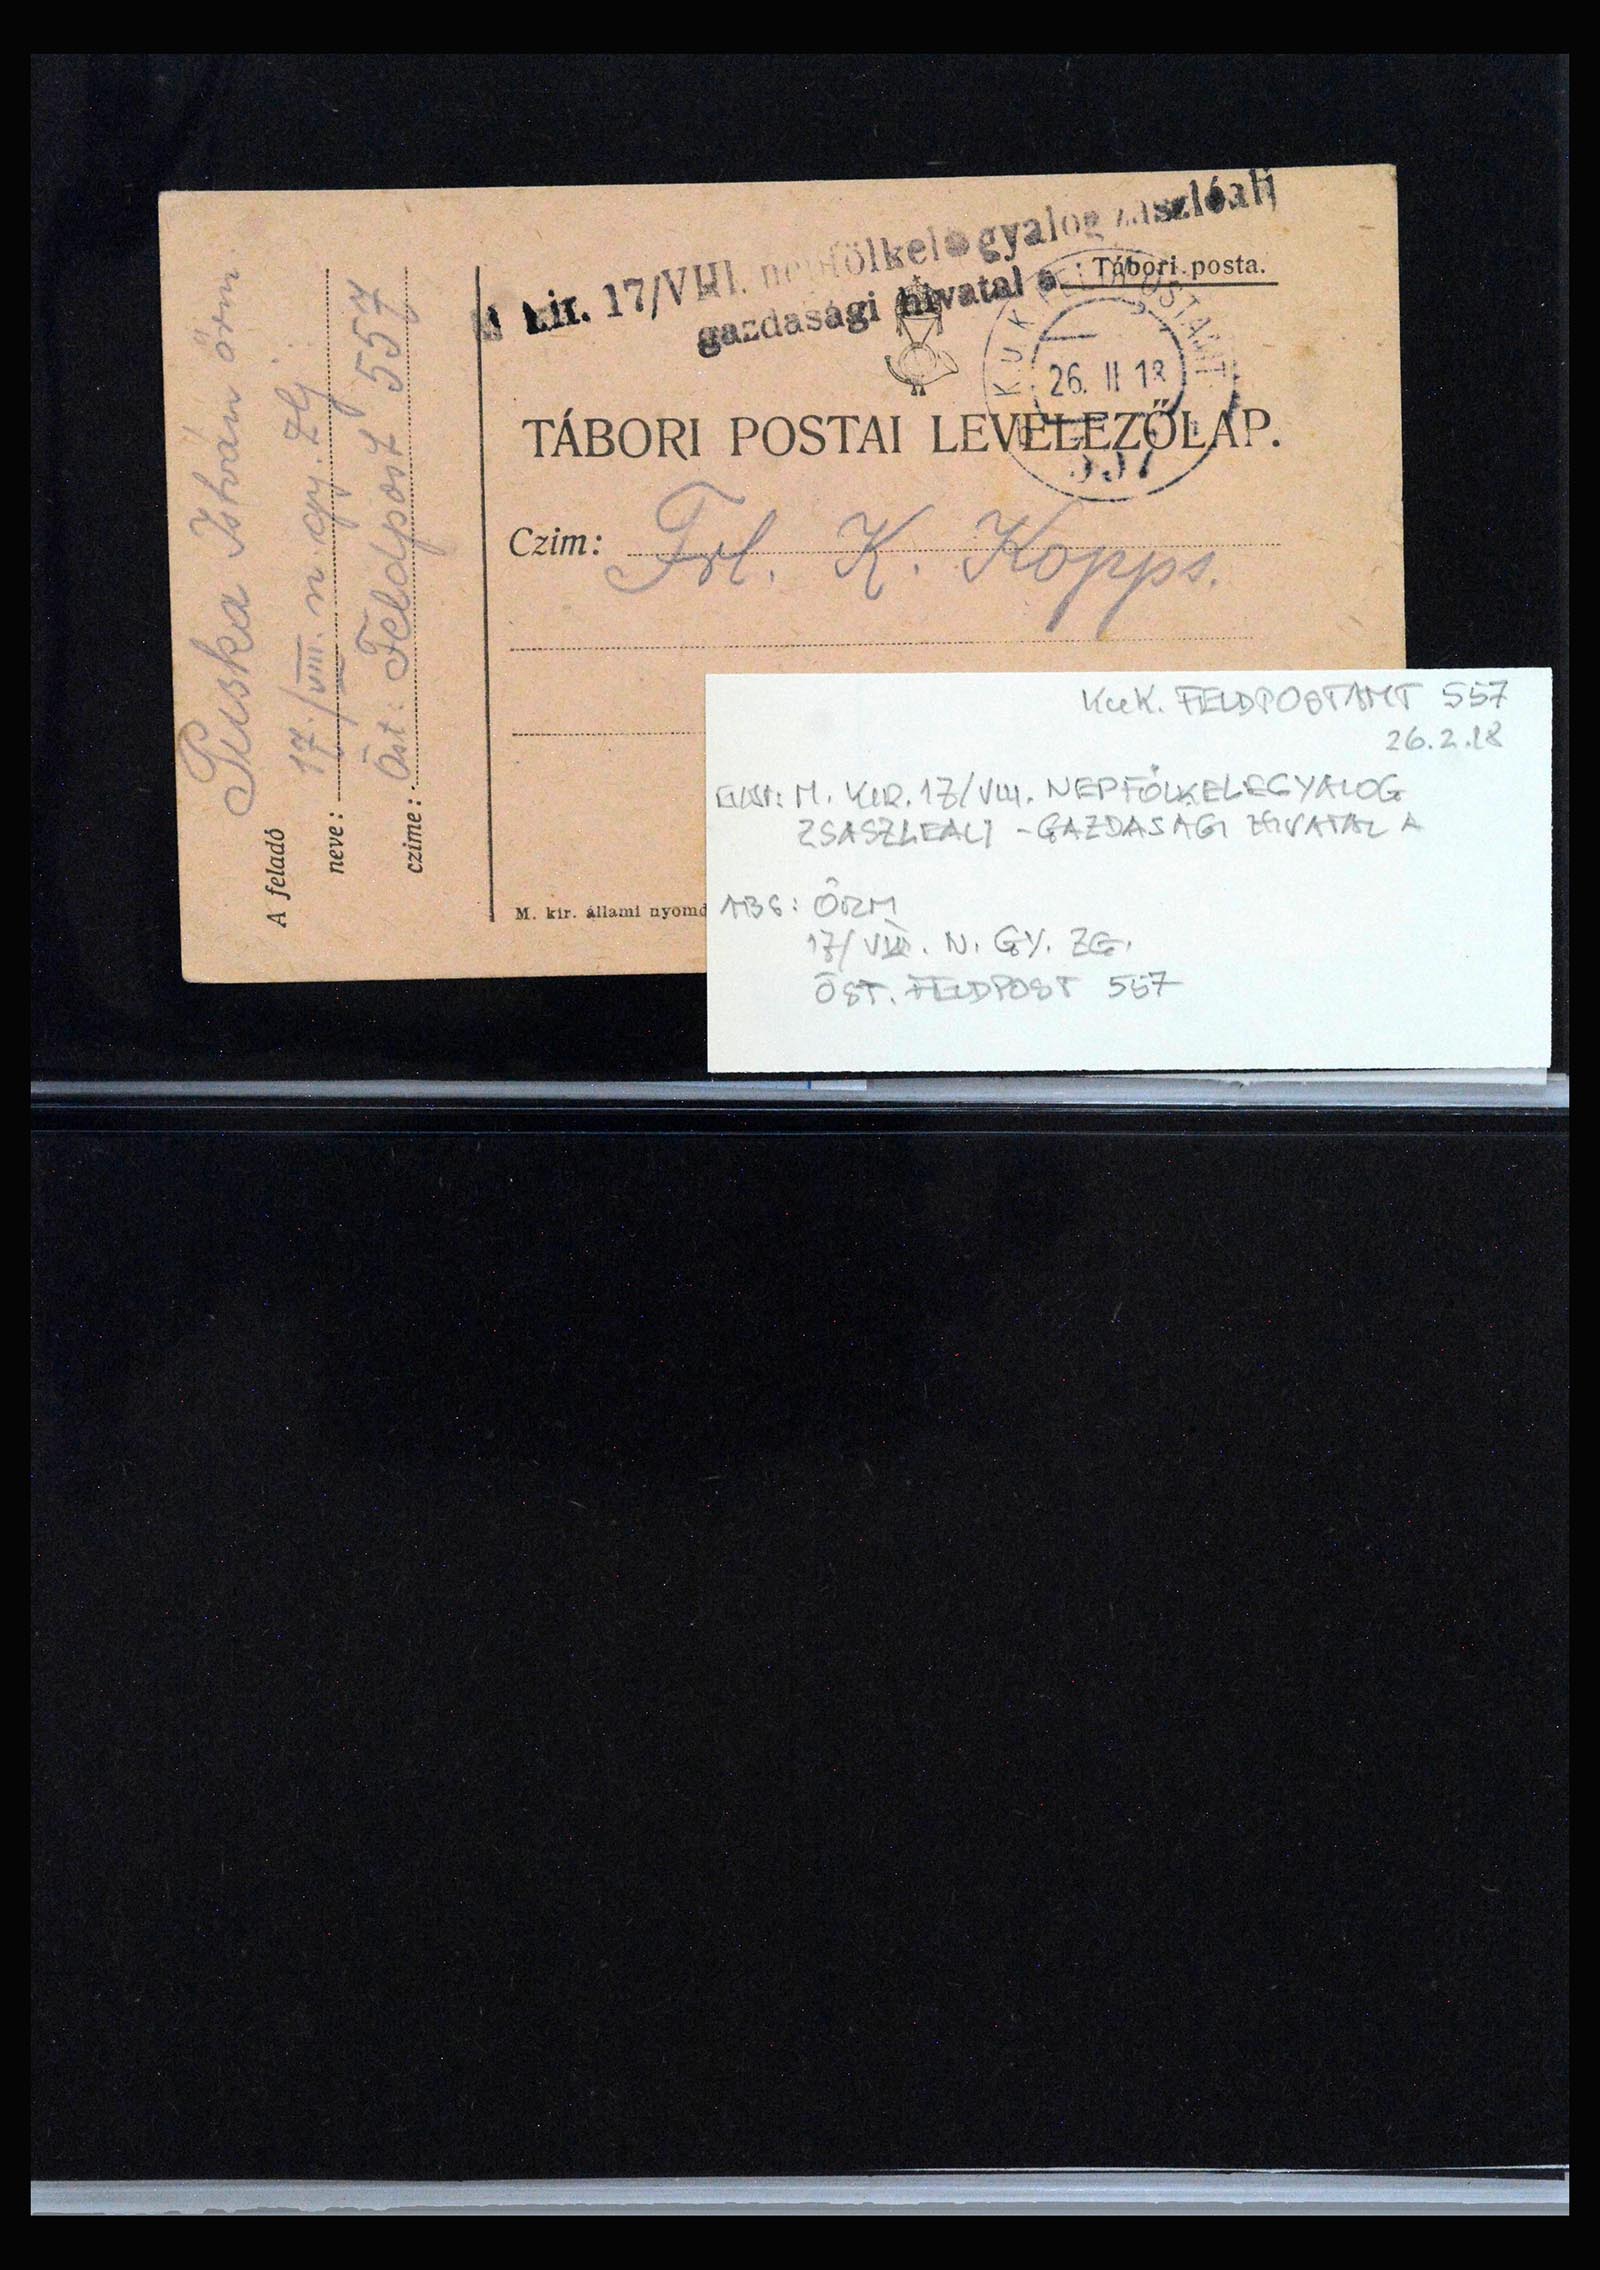 kir. 17/VIII. népfölkelő gyalog zászlóalj
gazdasági hivatal a
Tábori posta.
K.U.K. FELDPOSTAMT
26. II 18
557
TÁBORI POSTAI LEVELEZŐLAP.
Czim: Frl. K. Kopps.
A feladó
Puska István őrm.
neve:
17./VIII. n. gy. zlj.
czime:
Öst: Feldpost 557
M. kir. állami nyomd
KuK. FELDPOSTAMT 557
26.2.18
M. KIR. 17/VIII. NEPFÖLKELEGYALOG
ZSASZLEALJ - GAZDASAGI HIVATAL A
ABS: ÖRM
17/VIII. N. GY. ZG.
ÖST. FELDPOST 557